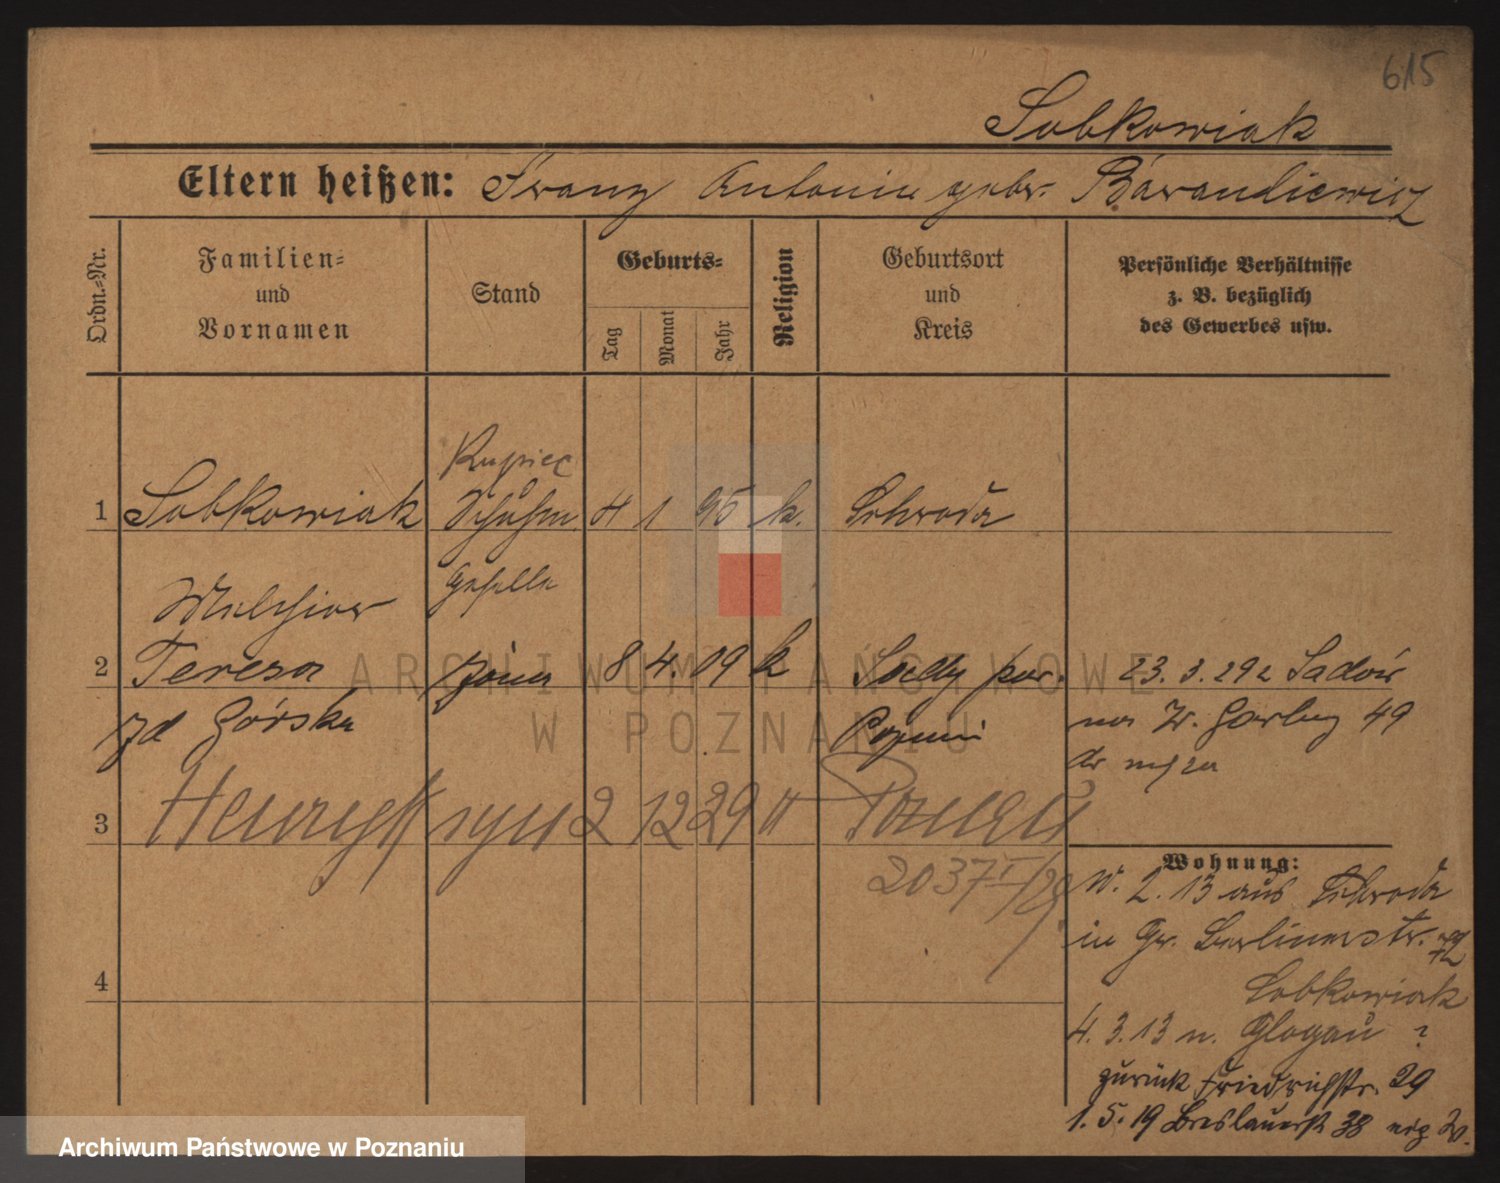 615
Sobkowiak
Eltern heißen: Franz Antonie gebr. Barandiewicz
Ordn.-Nr.
Familien-
und
Vornamen
Stand
Geburts-
Tag
Monat
Jahr
Religion
Geburtsort
und
Kreis
Persönliche Verhältnisse
z. B. bezüglich
des Gewerbes usw.
Kupiec
1 Sobkowiak Schuhm. 4 1 95 k. Schroda
Geselle
Melchior
2 Teresa żona 8 4. 09 k Sady pow. 23. 3. 29 z
zd Górska na W. Garbary 49
do męża
3 Henryk syn 2 12 29 Poznań
2037 /29
4
Wohnung:
W. 2. 13 aus Schroda
in Gr. Berlinerstr.
Sobkowiak
4. 3. 13 n. Glogau ?
zurück Friedrichstr. 29
1. 5. 19 Breslauerst 38
ARCHIWUM PAŃSTWOWE
W POZNANIU
Archiwum Państwowe w Poznaniu